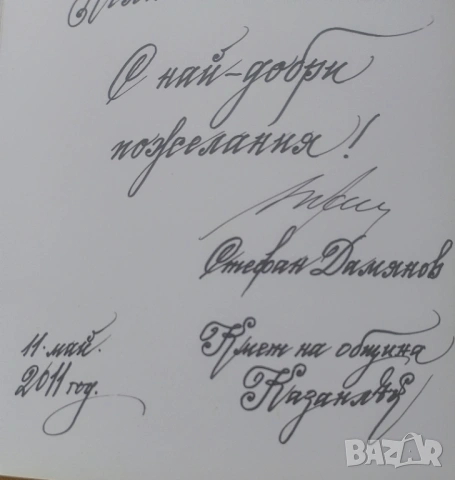 С най-добри
пожелания!
Стефан Дамянов
11. май.
2011 год.
Кмет на община
Казанлък
bazar.bg